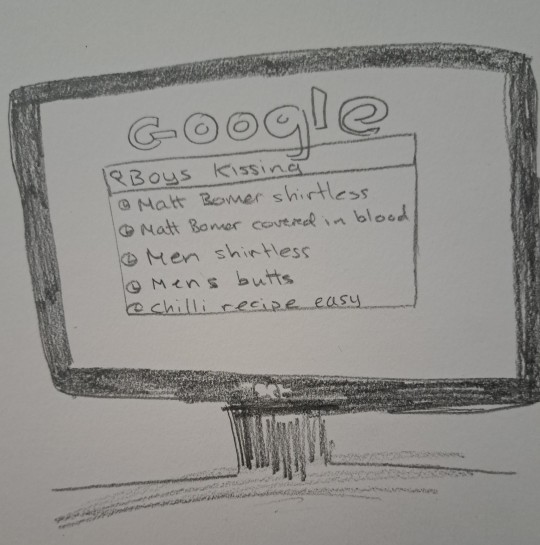 Google
Boys Kissing
Matt Bomer shirtless
Matt Bomer covered in blood
Men shirtless
Men's butts
chilli recipe easy